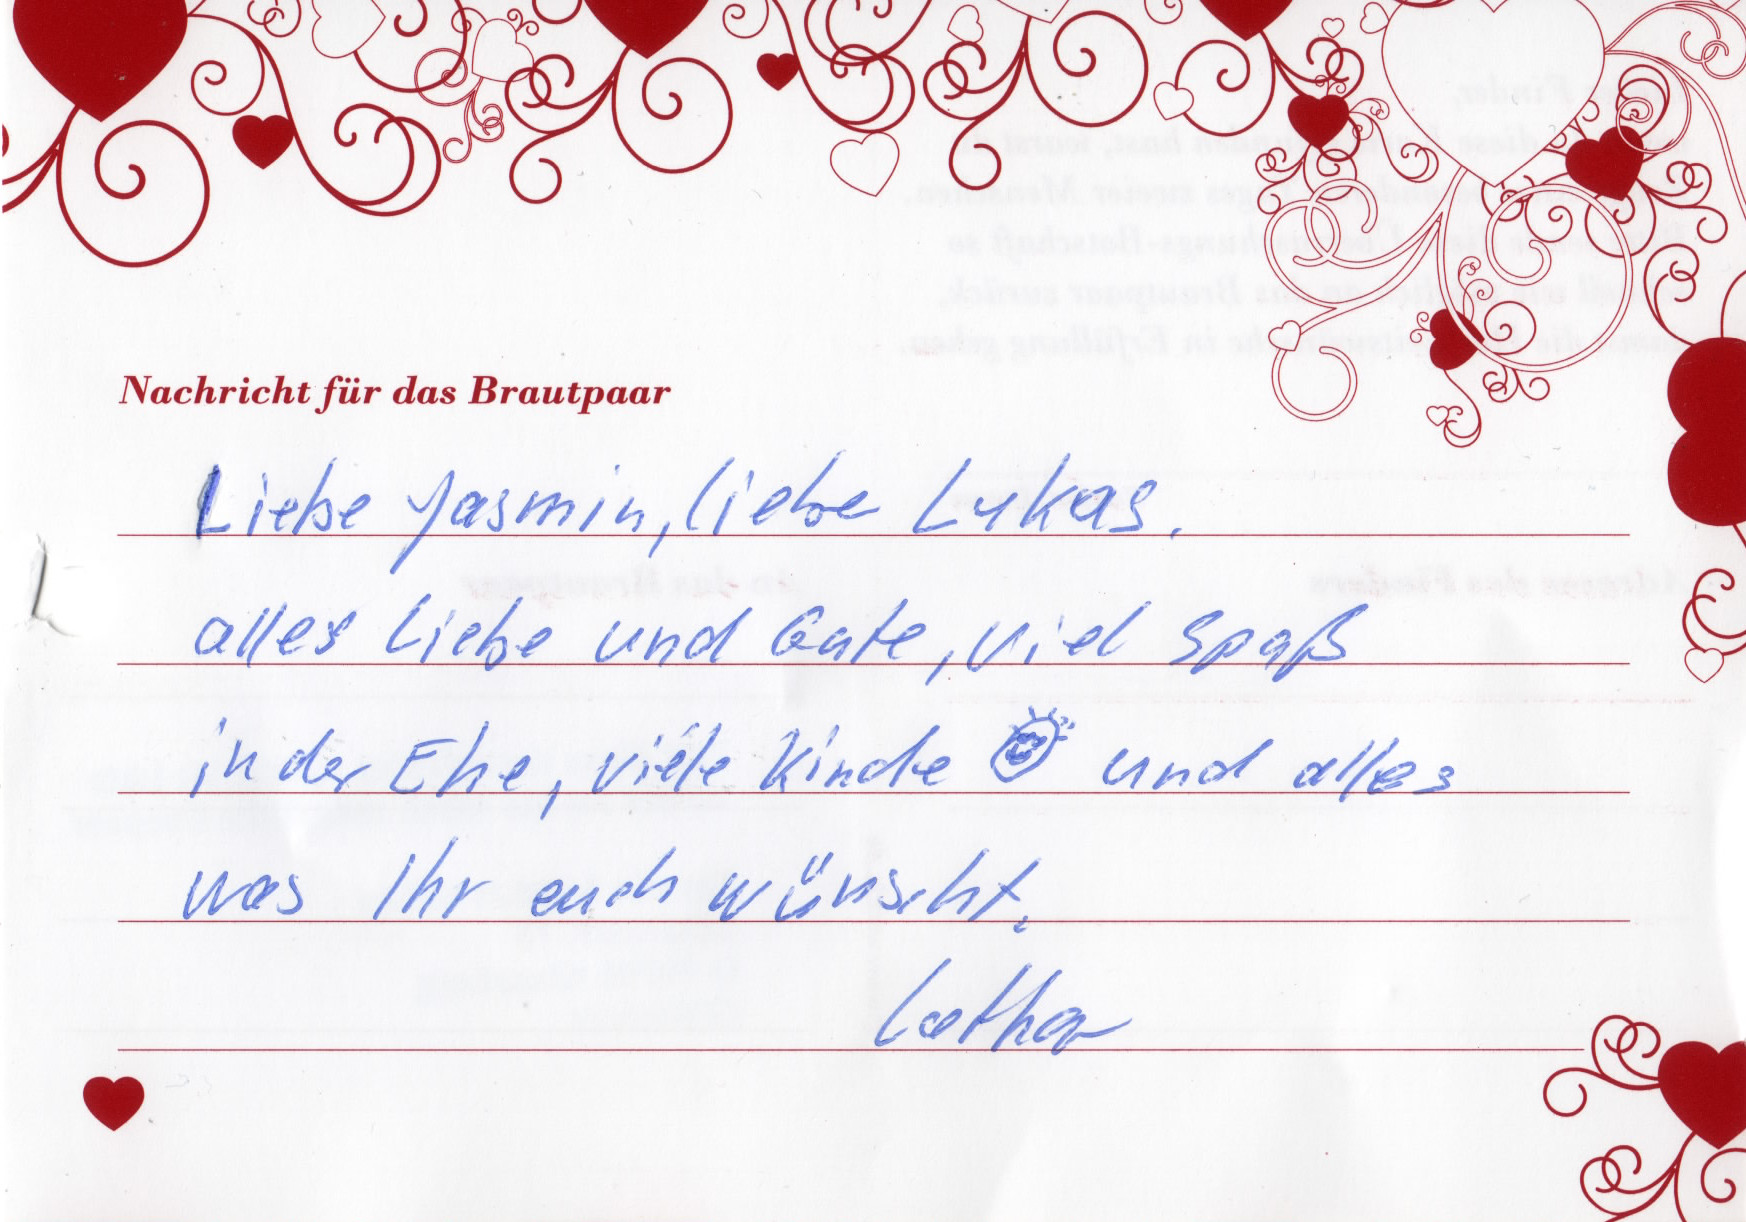 Nachricht für das Brautpaar
Liebe Yasmin, liebe Lukas.
alles Liebe und Gute, viel Spaß
in der Ehe, viele Kinde und alles
was Ihr euch wünscht.
Lothar